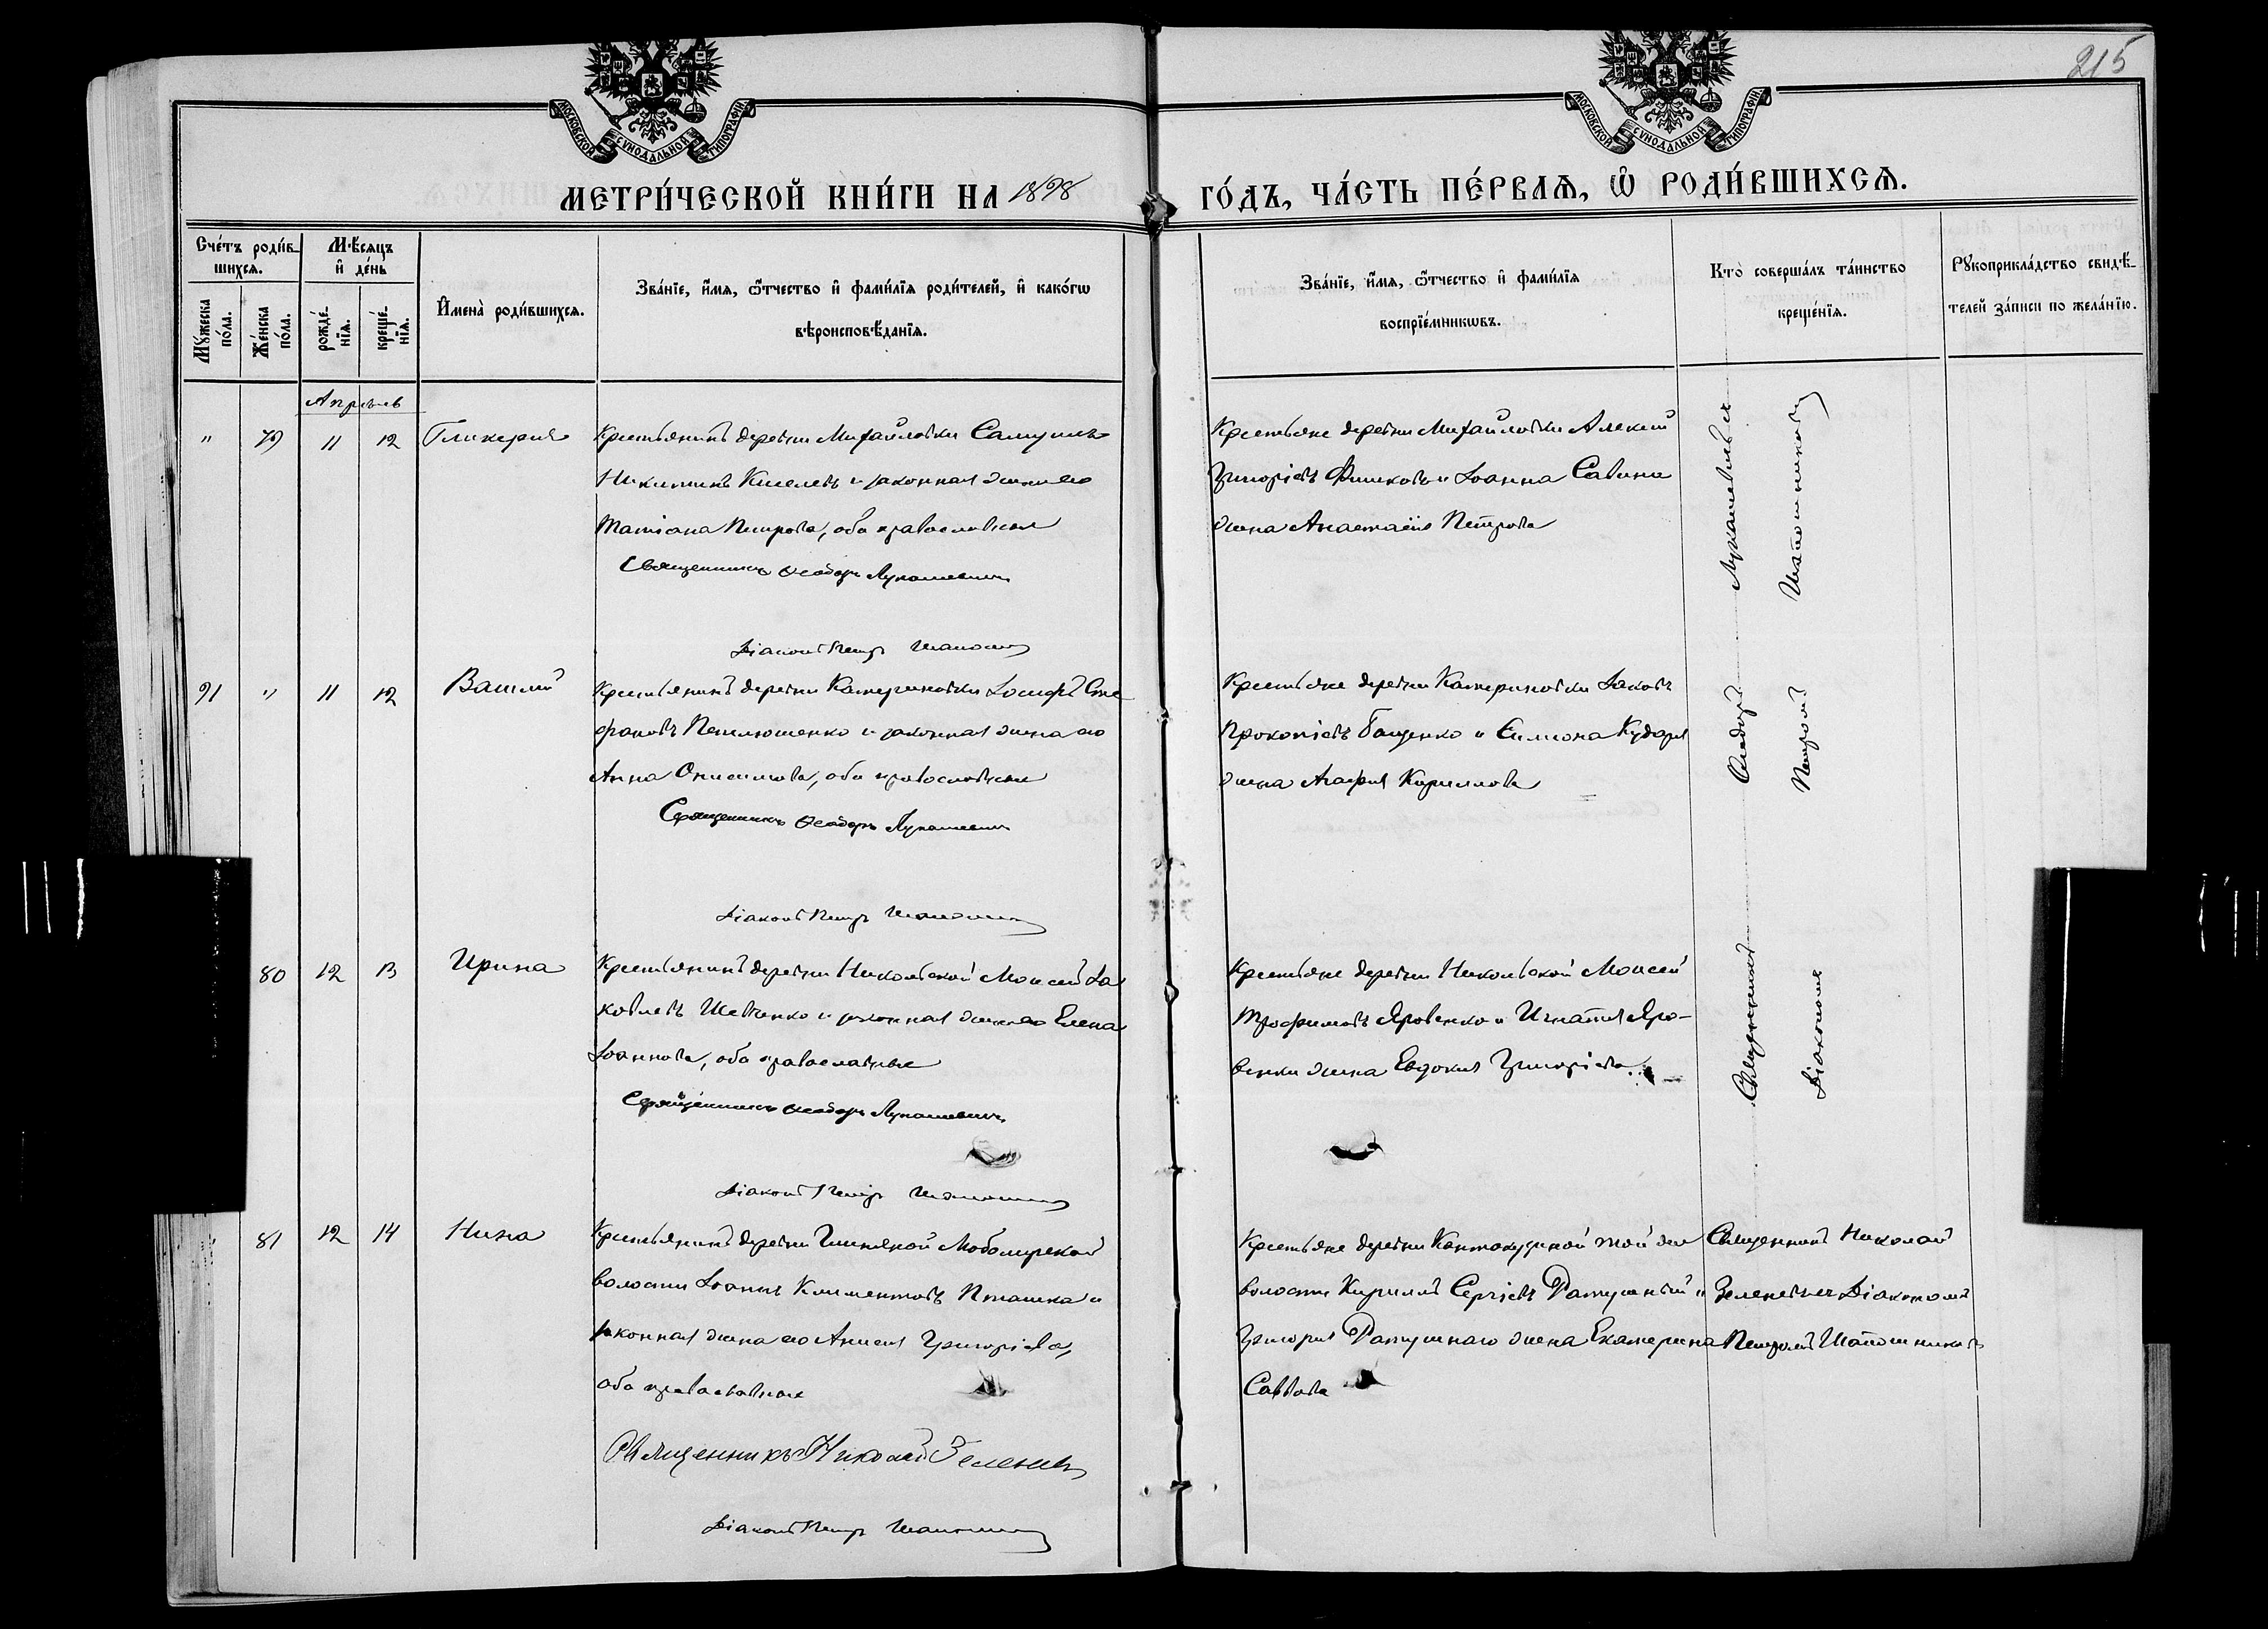 215
МОСКОВСКОЙ СѴНОДАЛЬНОЙ ТИПОГРАФІИ
МОСКОВСКОЙ СѴНОДАЛЬНОЙ ТИПОГРАФІИ
МЕТРИ́ЧЕСКОЙ КНИ́ГИ НА 1898
ГО́ДЪ, ЧА́СТЬ ПЕ́РВАѦ, Ѡ҆ РОДИ́ВШИХСѦ.
Сче́тъ роди́в-
шихсѧ.
Мꙋжеска по́ла.
Же́нска по́ла.
Мѣ́сѧцъ
и҆ де́нь
рожде́-
нїѧ.
креще́-
нїѧ.
И҆мена̀ роди́вшихсѧ.
Зва́нїе, и҆́мѧ, ѻ҆́тчество и҆ фами́лїѧ роди́телей, и҆ како́гѡ
вѣроисповѣ́данїѧ.
Зва́нїе, и҆́мѧ, ѻ҆́тчество и҆ фами́лїѧ
воспрїе́мникѡвъ.
Кто̀ соверша́лъ та́инство
креще́нїѧ.
Рꙋкоприкла́дство свидѣ́-
телей за́писи по жела́нїю.
Апрѣль
" 79 11 12 Гликерия
Крестьянинъ деревни Михайловки Самуилъ
Никитинъ Киселевъ и законная жена его
Татіана Петрова, оба православные
Священникъ Ѳеодоръ Лукашевичъ
Діаконъ Петръ Шапошник
Крестьяне деревни Михайловки Алексій
Григоріевъ Фишковъ и Іоанна Савина
жена Анастасія Петрова
91 " 11 12 Василій
Крестьянинъ деревни Катериновки Іосифъ Сте
фановъ Пепелюшенко и законная жена его
Анна Онисимова, оба православные
Священникъ Ѳеодоръ Лукашевичъ
Діаконъ Петръ Шапошник
Крестьяне деревни Катериновки Іаковъ
Прокопіевъ Бащенко и Симеона Кударя
жена Агафия Кириллова
80 12 13 Ирина
Крестьянинъ деревни Никольской Моисей Іа
ковлевъ Шевченко и законная жена его Елена
Іоаннова, оба православные
Священникъ Ѳеодоръ Лукашевичъ
Діаконъ Петръ Шапошник
Крестьяне деревни Никольской Моисей
Трофимовъ Яровенко и Игнатия Яро-
венки жена Евдокия Григоріева.
Священникъ Ѳеодоръ Лукашевичъ
Діакономъ Петромъ Шапошниковъ
81 12 14 Нина
Крестьянинъ деревни Глиняной Любомирской
волости Іоаннъ Климентовъ Пташка и
законная жена его Анисия Григоріева,
оба православные
Священникъ Николай Зеленевъ
Діаконъ Петръ Шапошник
Крестьяне деревни Кантакузиной той же
волости Кириллъ Сергіевъ Ратушный и
Григория Ратушнаго жена Екатерина
Саввова
Священникъ Николай
Зеленевъ съ Діакономъ
Петромъ Шапошниковъ